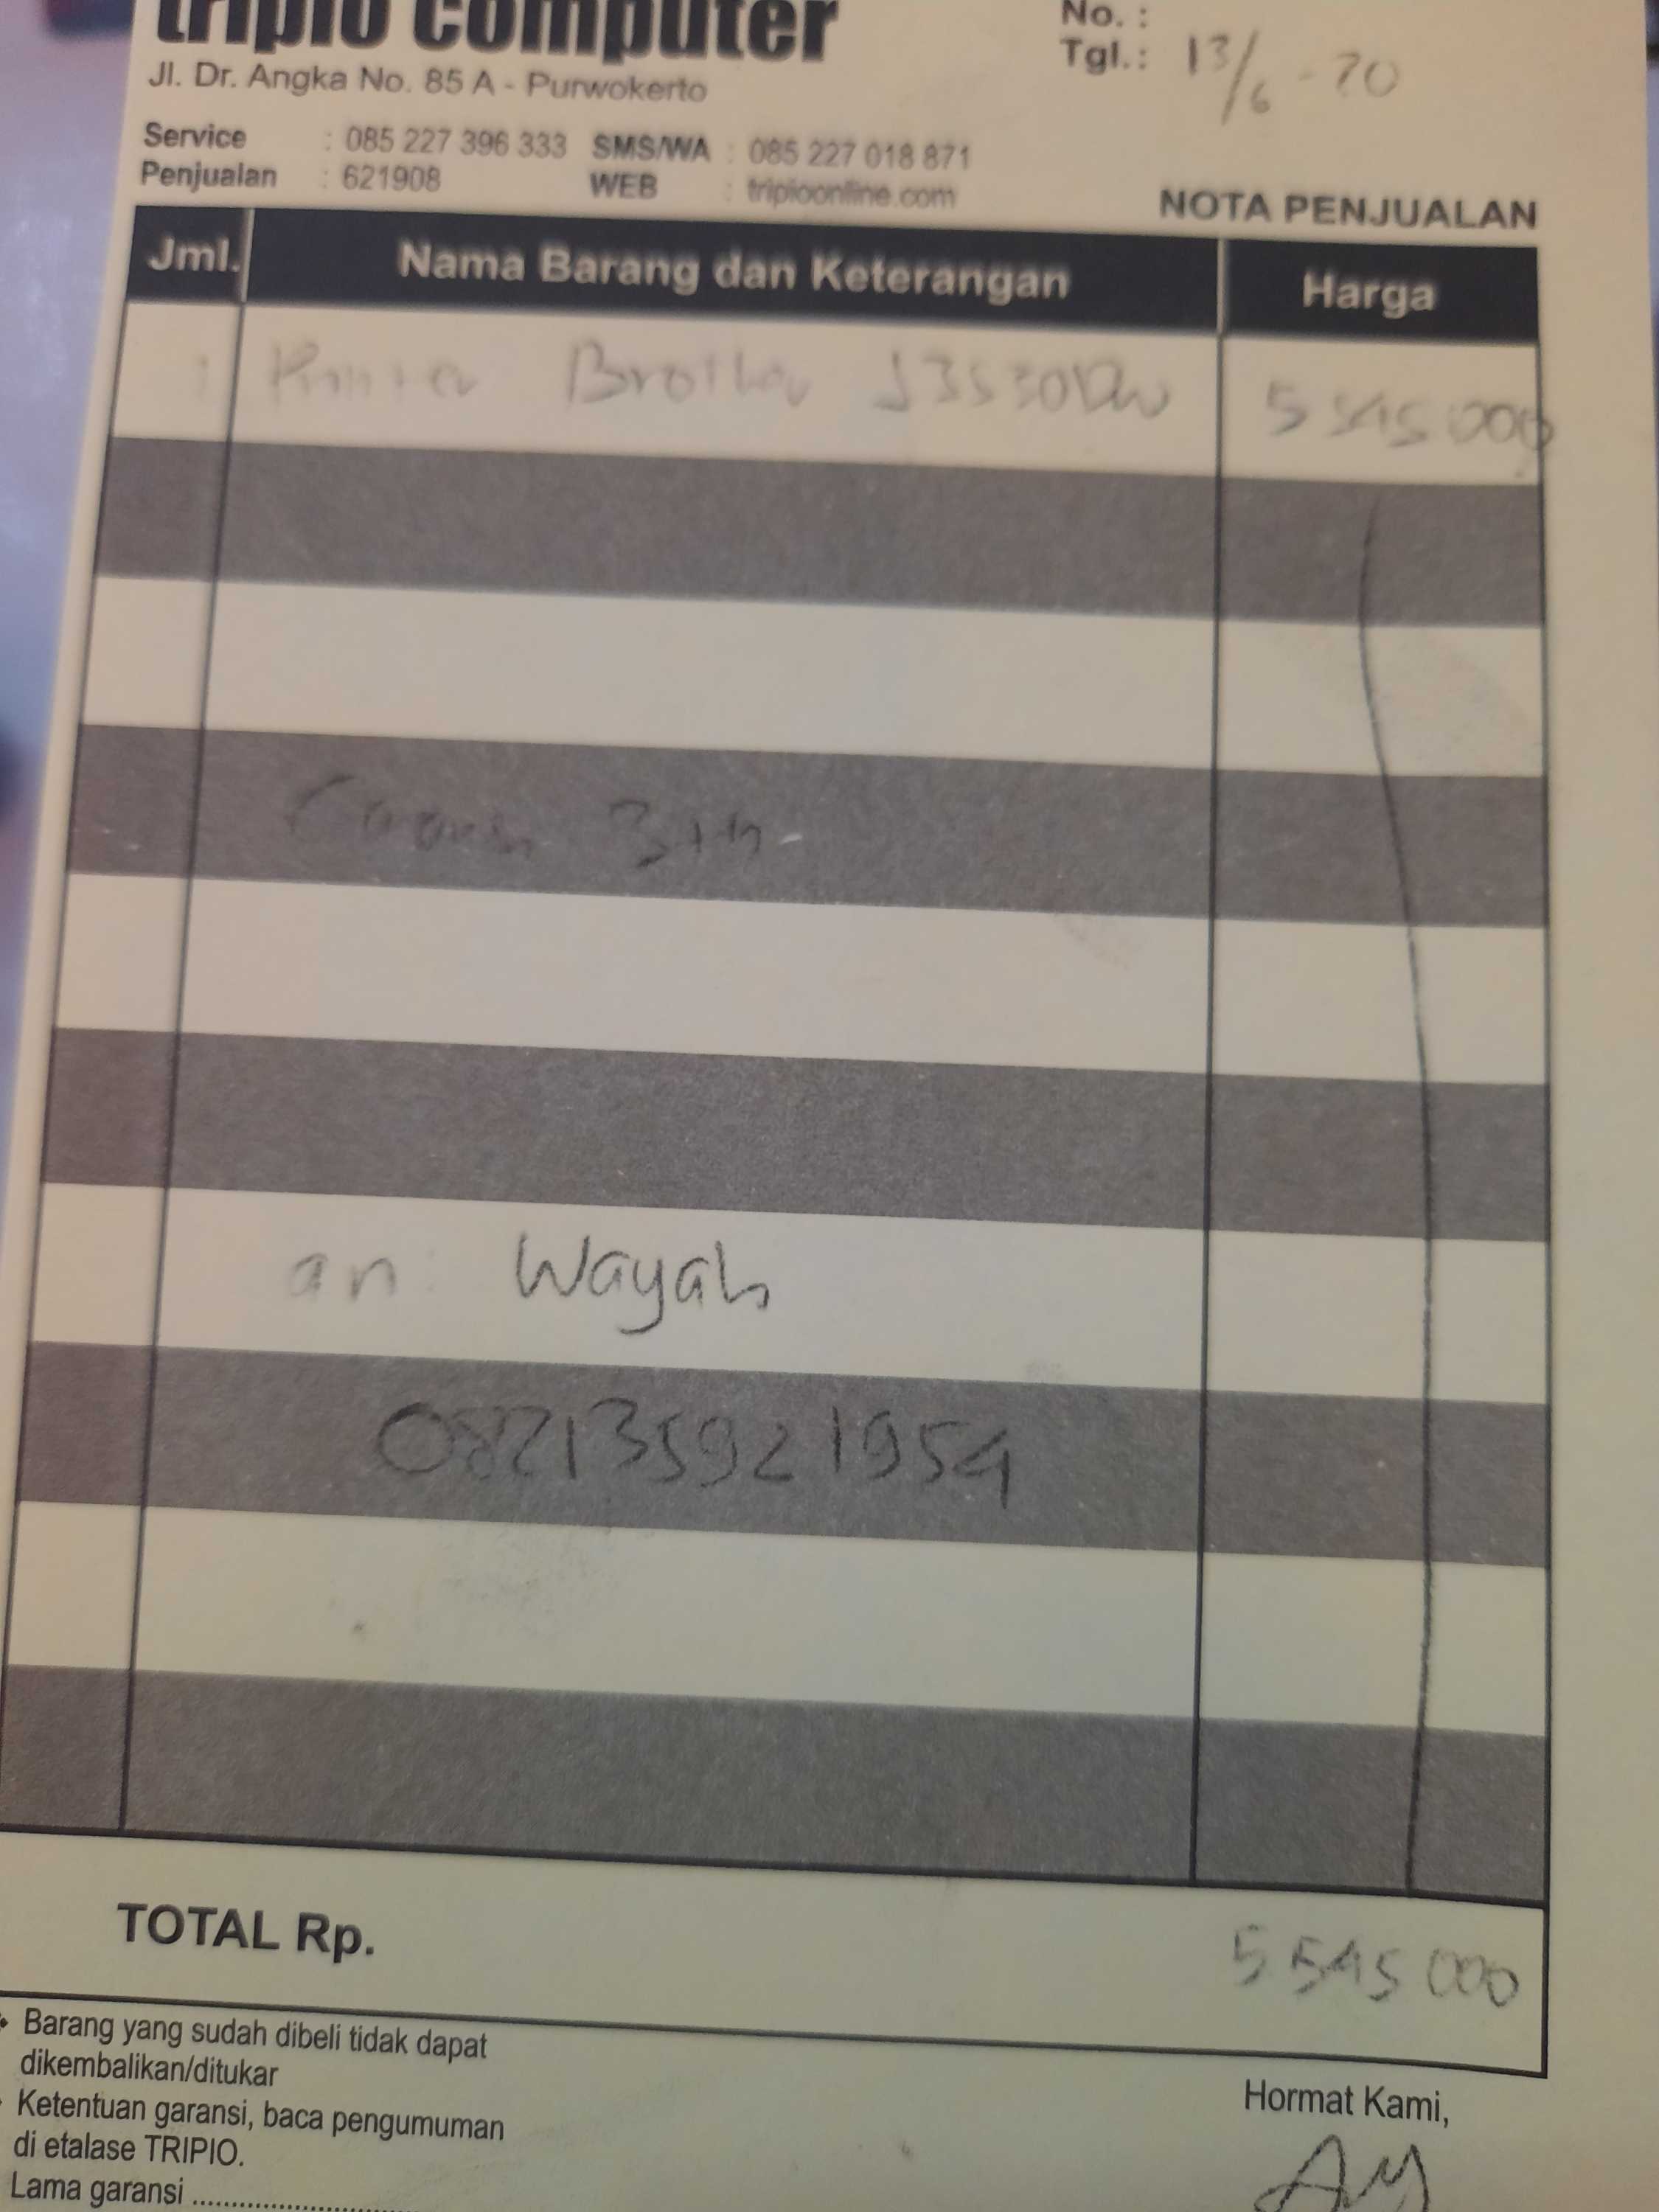 tripio computer
No. :
Jl. Dr. Angka No. 85 A - Purwokerto
Tgl.: 13/6 - 20
Service : 085 227 396 333 SMS/WA : 085 227 018 871
Penjualan : 621908 WEB : tripioonline.com
NOTA PENJUALAN
Jml. Nama Barang dan Keterangan Harga
1 Printer Brother J3530DW 5 545 000
3 th
an : Wayah
082135921954
TOTAL Rp. 5 545 000
Barang yang sudah dibeli tidak dapat
dikembalikan/ditukar
Ketentuan garansi, baca pengumuman
di etalase TRIPIO.
Lama garansi ........................
Hormat Kami,